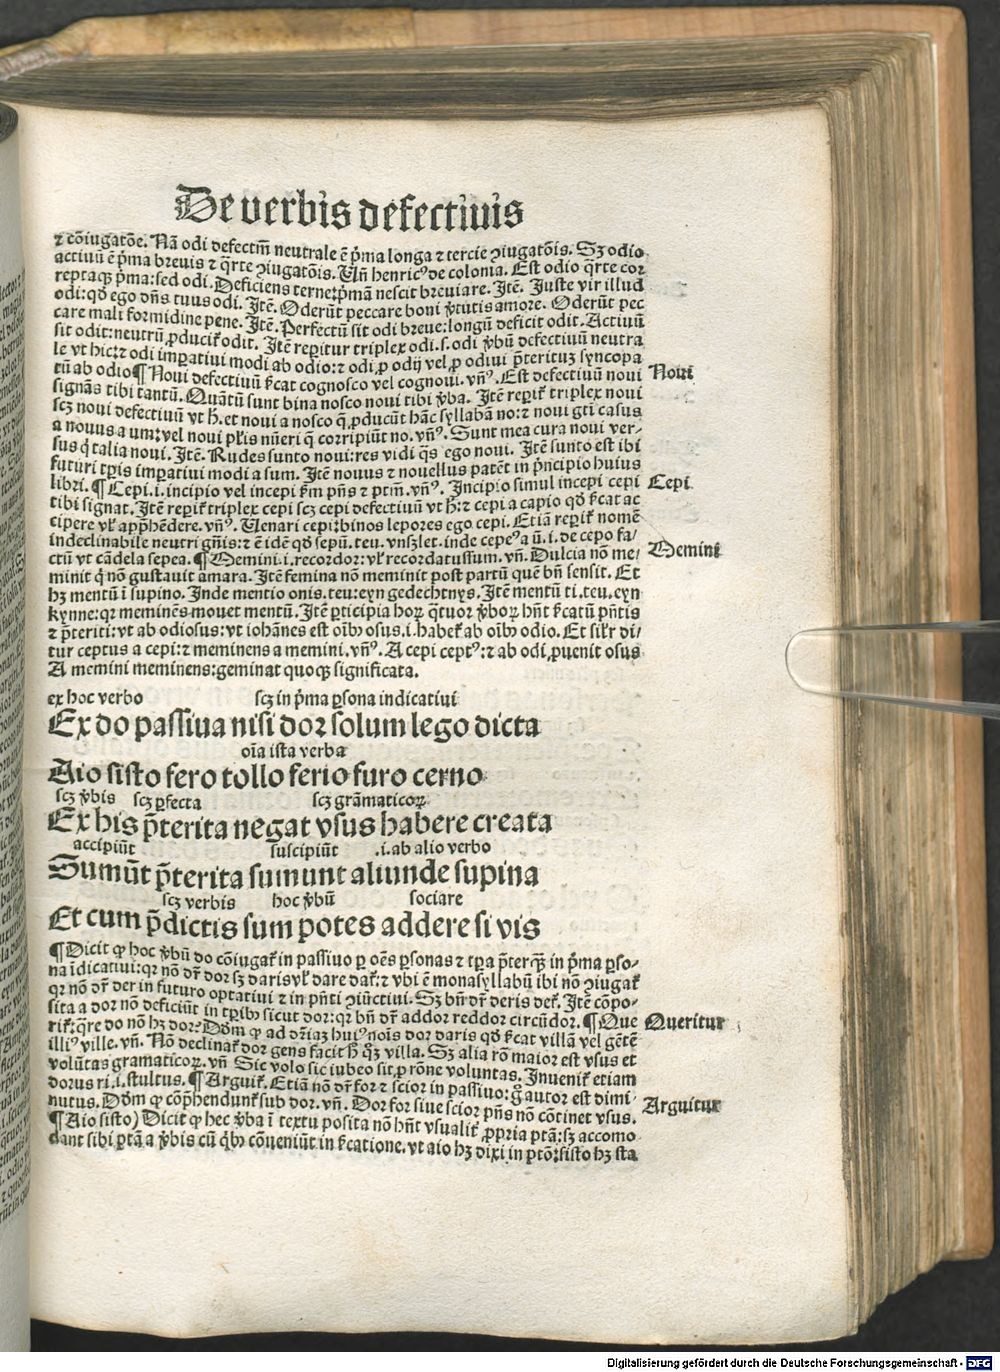 De verbis defectiuis
⁊ cōiugatōe. Nā odi defectiū neutrale ē p̄ma longa ⁊ tercie ꝯiugatōis. Sꝫ odio
actiuū ē p̄ma breuis ⁊ q̄rte ꝯiugatōis. Vn̄ henricꝰ de colonia. Est odio q̄rte cor
reptaqꝫ p̄ma: sed odi. Deficiens terne: p̄mā nescit breuiare. Itē. Iuste vir illud
odi: qd̄ ego dn̄s tuus odi. Itē. Oderūt peccare boni v̄tutis amore. Oderūt pec
care mali formidine pene. Itē. Perfectū sit odi breue: longū deficit odit. Actiuū
sit odit: neutrū ꝓducit̄ odit. Itē reꝑitur triplex odi. s. odi v̄bū defectiuū neutra
le vt hic: ⁊ odi imꝑatiui modi ab odio: ⁊ odi ꝓ odij vel ꝓ odiui p̄teritūꝫ syncopa
tū ab odio ¶ Noui defectiuū ẜcat cognosco vel cognoui. vn̄ꝰ. Est defectiuū noui
Noui
signās tibi tantū. Quātū sunt bina nosco noui tibi v̄ba. Itē reꝑit̄ triplex noui
scꝫ noui defectiuū vt h̄. et noui a nosco q̄ ꝓducūt hāc syllabā no: ⁊ noui gt̄i casus
a nouus a um: vel noui pl̄ris nūeri q̄ corripiūt no. vn̄ꝰ. Sunt mea cura noui ver-
sus q̄ talia noui. Itē. Rudes sunto noui: res vidi qͣs ego noui. Itē sunto est ibi
futuri tꝑis imꝑatiui modi a sum. Itē nouus ⁊ nouellus patēt in p̄ncipio huius
libri. ¶ Cepi. i. incipio vel incepi ẜm pn̄s ⁊ ptm̄. vn̄ꝰ. Incipio simul incepi cepi
Cepi
tibi signat. Itē reꝑit̄ triplex cepi scꝫ cepi defectiuū vt h̄: ⁊ cepi a capio qd̄ ẜcat ac
cipere vl̄ app̄hēdere. vn̄ꝰ. Uenari cepi: binos lepores ego cepi. Etiā reꝑit̄ nomē
indeclinabile neutri gn̄is: ⁊ ē idē qd̄ sepū. teu. vnszlet. inde cepeꝰ a ū. i. de cepo fa/
ctū vt cādela sepea. ¶ Memini. i. recordor: vl̄ recordatus sum. vn̄. Dulcia nō me/
Memini
minit q̄ nō gustauit amara. Itē femina nō meminit post partū quē bn̄ sensit. Et
hꝫ mentū i supino. Inde mentio onis. teu: eyn gedechtnys. Itē mentū ti. teu. eyn
kynne: qꝛ meminēs mouet mentū. Itē ꝑticipia hoꝝ q̄tuor v̄boꝝ hn̄t ẜcatū pn̄tis
⁊ p̄teriti: vt ab odi osus: vt iohānes est oībꝫ osus. i. habet̄ ab oībꝫ odio. Et sil̄r di/
tur ceptus a cepi: ⁊ meminens a memini. vn̄ꝰ. A cepi ceptꝰ: ⁊ ab odi ꝓuenit osus
A memini meminens: geminat quoqꝫ significata.
ex hoc verbo scꝫ in p̄ma ꝑsona indicatiui
Ex do passiua nisi dor solum lego dicta
oīa ista verba
Aio sisto fero tollo ferio furo cerno
scꝫ v̄bis scꝫ ꝑfecta scꝫ grāmaticoꝝ
Ex his p̄terita negat vsus habere creata
accipiūt suscipiūt .i. ab alio verbo
Sumūt p̄terita sumunt aliunde supina
scꝫ verbis hoc v̄bū sociare
Et cum p̄dictis sum potes addere si vis
¶ Dicit ꝙ hoc v̄bū do cōiugat̄ in passiuo ꝑ oēs ꝑsonas ⁊ tꝑa p̄terqꝫ̄ in p̄ma ꝑso-
na īdicatiui: qꝛ nō dr̄ dor sꝫ daris vl̄ dare dat̄: ⁊ vbi ē monasyllabū ibi nō ꝯiugat̄
qꝛ nō dr̄ der in futuro optatiui ⁊ in pn̄ti ꝯiūctiui. Sꝫ bn̄ dr̄ deris det̄. Itē cōpo-
sita a dor nō deficiūt in tꝑibꝫ sicut dor: qꝛ bn̄ dr̄ addor reddor circūdor. ¶ Que
Queritur
rit̄: q̄re do nō hꝫ dor? Dōm ꝙ ad dr̄iaꝫ huiꝰ nois dor daris qd̄ ẜcat villā vel gētē
illiꝰ ville. vn̄. Nō declinat̄ dor gens facit h̄ q̄ꝫ villa. Sꝫ alia rō maior est vsus et
volūtas gramaticoꝝ. vn̄ Sic volo sic iubeo sit ꝓ rōne voluntas. Inuenit̄ etiam
dorus ri. i. stultus. ¶ Arguit̄. Etiā nō dr̄ for ⁊ scior in passiuo: g̊ autor est dimi-
nutus. Dōm ꝙ cōp̄hendunt̄ sub dor. vn̄. Dor for siue scior pn̄s nō cōtinet vsus.
Arguitur
¶ Aio sisto) Dicit ꝙ hec v̄ba ī textu posita nō hn̄t vsualit̄ ꝓpria ptā: sꝫ accomo
dant sibi ꝑtā a v̄bis cū q̄bꝫ cōueniūt in ẜcatione. vt aio hꝫ dixi in ptō: sisto hꝫ sta
Digitalisierung gefördert durch die Deutsche Forschungsgemeinschaft - DFG